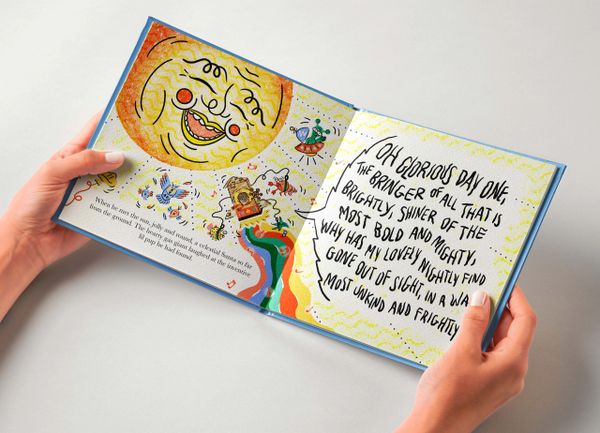 When he met the sun, jolly and round, a celestial Santa so far
from the ground. The hearty gas giant laughed at the inventive
lil pup he had found.
OH GLORIOUS DAY ONE,
THE BRINGER OF ALL THAT IS
BRIGHTLY, SHINER OF THE
MOST BOLD AND MIGHTY,
WHY HAS MY LOVELY NIGHTLY FIND
GONE OUT OF SIGHT, IN A WAY
MOST UNKIND AND FRIGHTLY